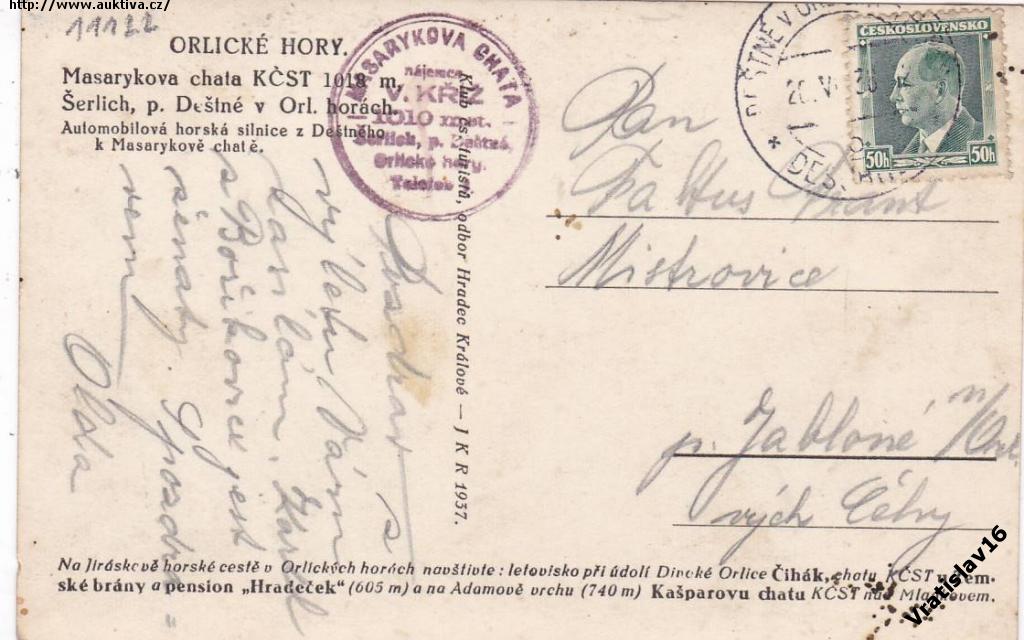 http://www.auktiva.cz/
11122
ORLICKÉ HORY.
Masarykova chata KČST 1018 m,
Šerlich, p. Deštné v Orl. horách.
Automobilová horská silnice z Deštného
k Masarykově chatě.
MASARYKOVA CHATA
nájemce
V. KŘÍŽ
1010 m
Šerlich, p. Deštná,
Orlické hory.
Telefon
Klub čs. turistů, odbor Hradec Králové — J K R 1937.
DEŠTNÉ V
ČESKOSLOVENSKO
50h 50h
Pan
Mistrovice
p. Jabloné n/Orl
vých Čéhy
Pozdrav s
výletu Vám
s Bořikovic
Olda
Na Jiráskově horské cestě v Orlických horách navštivte: letovisko při údolí Divoké Orlice Čihák, chatu KČST u Zem-
ské brány a pension „Hradeček“ (605 m) a na Adamově vrchu (740 m) Kašparovu chatu KČST nad Mladkovem.
Vratislav16